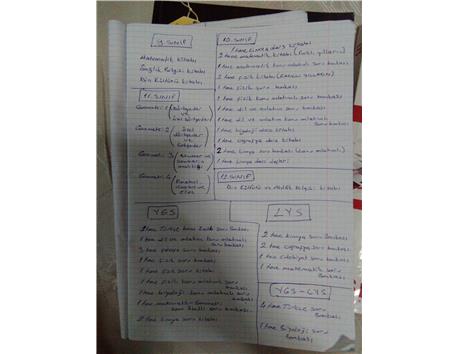 9. SINIF
Matematik kitabı
Sağlık Bilgisi kitabı
Din Kültürü kitabı
11. SINIF
Geometri 1
Geometri 2
Özel
Dörtgenler
Geometri 3
Geometri 4
10. SINIF
1 tane kimya ders kitabı
2 tane matematik kitabı
1 tane matematik konu anlatımlı soru bankası
2 tane fizik kitabı
1 tane fizik soru bankası
1 tane fizik konu anlatımlı soru bankası
1 tane dil ve anlatım soru bankası
1 tane dil ve anlatım konu anlatımlı
soru bankası
1 tane biyoloji ders kitabı
1 tane coğrafya ders kitabı
2 tane kimya soru bankası (konu anlatımlı)
1 tane kimya ders defteri
12. SINIF
Din Kültürü ve Ahlak Bilgisi kitabı
YGS
2 tane Türkçe soru bankası
1 tane dil ve anlatım konu anlatımlı
soru bankası
3 tane soru bankası
1 tane fizik soru bankası
1 tane fizik soru kitabı
1 tane fizik konu anlatımlı soru
bankası
1 tane biyoloji konu anlatımlı soru
bankası
1 tane matematik-Geometri
soru bankası
2 tane kimya soru kitabı
LYS
2 tane kimya soru bankası
2 tane coğrafya soru bankası
1 tane edebiyat soru bankası
1 tane matematik soru
bankası
YGS-LYS
tane Türkçe soru
bankası
1 tane Biyoloji soru
bankası